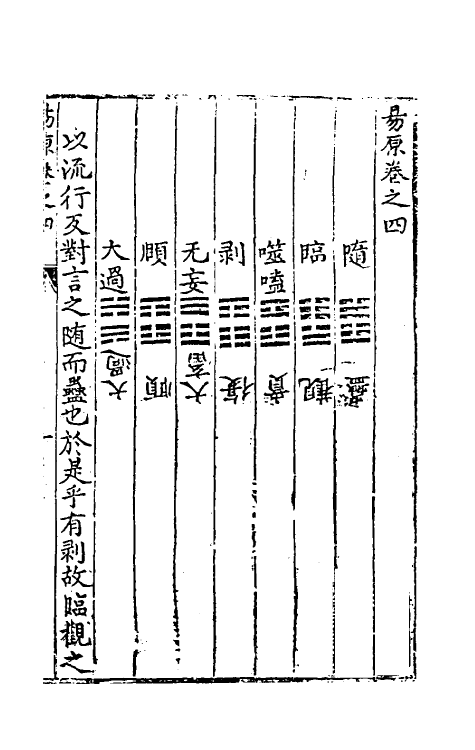 易原卷之四
隨 ䷐ 蠱
臨 ䷒ 觀
噬嗑 ䷔ 賁
剥 ䷖ 復
无妄 ䷘ 大畜
頤 ䷚ 頤
大過 ䷛ 大過
以流行反對言之随而蠱也於是乎有剥故臨觀之
易原卷之四